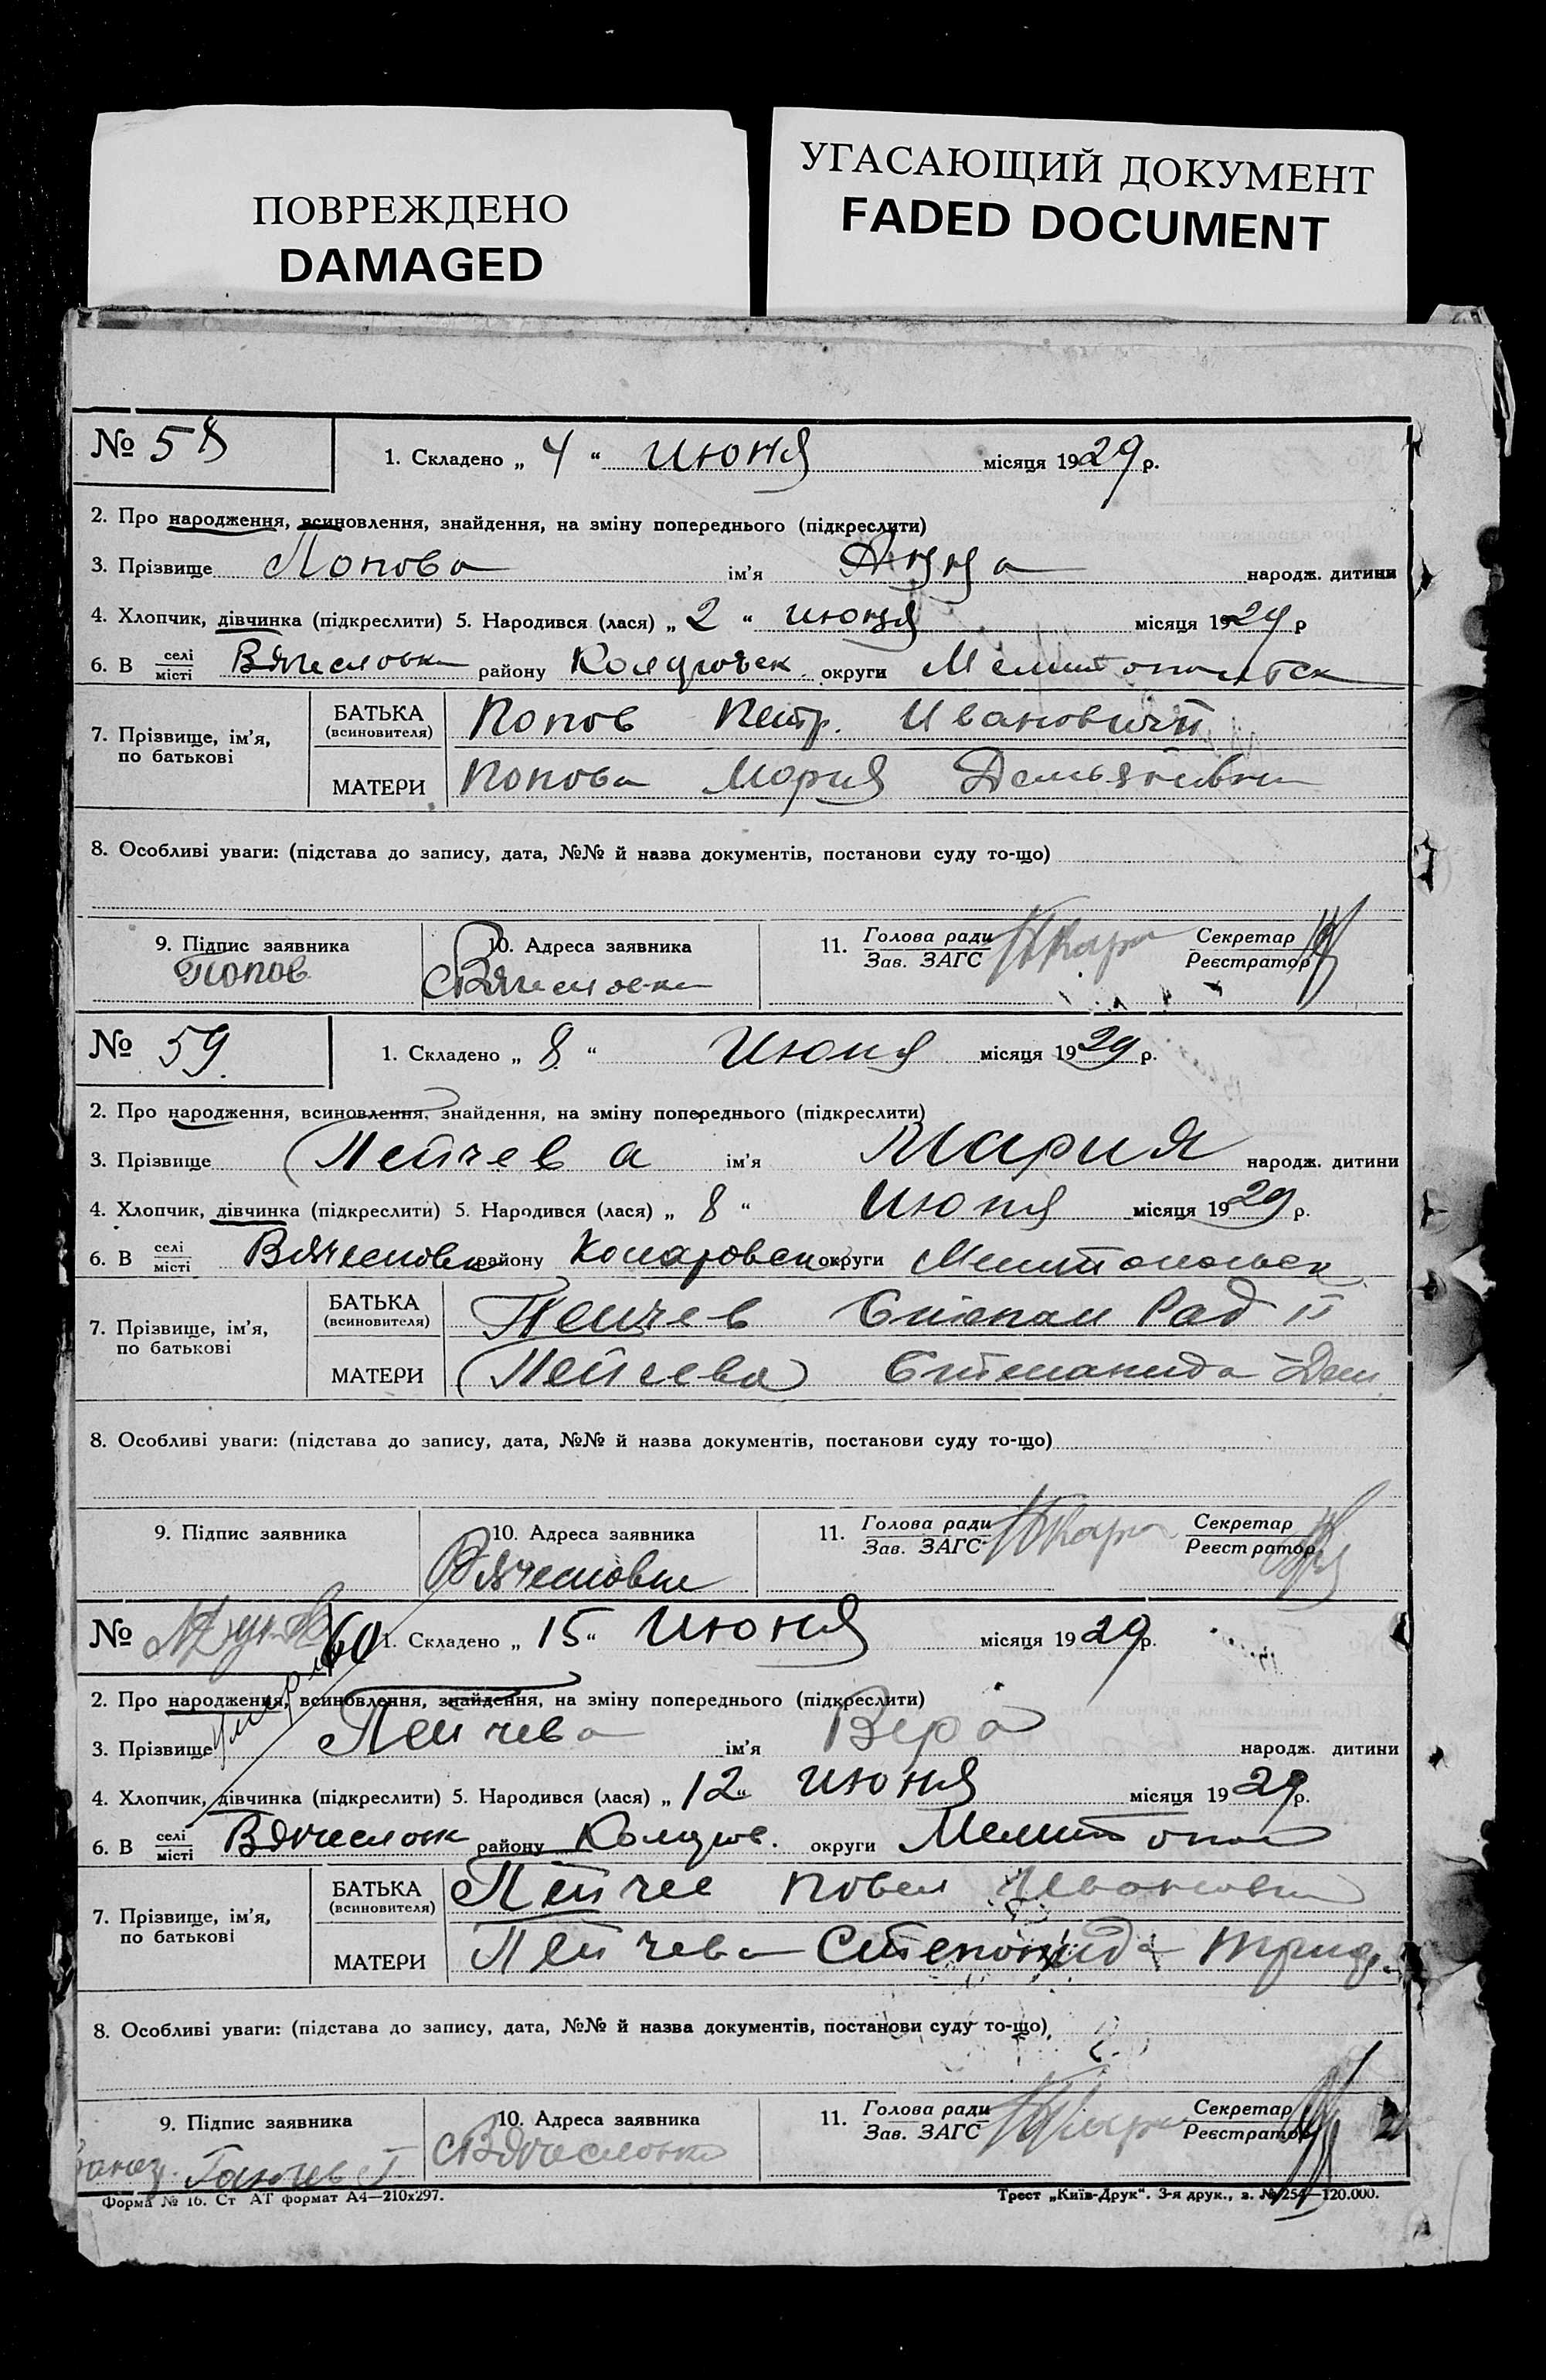 ПОВРЕЖДЕНО
DAMAGED
УГАСАЮЩИЙ ДОКУМЕНТ
FADED DOCUMENT
№ 58
1. Складено „ 4 “ июня місяця 1929 р.
2. Про народження, всиновлення, знайдення, на зміну попереднього (підкреслити)
3. Прізвище Попова ім’я Анна народж. дитини
4. Хлопчик, дівчинка (підкреслити) 5. Народився (лася) „ 2 “ июня місяця 1929 р
6. В селі місті Вячесловка району округи Мелитопольск
7. Прізвище, ім’я, по батькові
БАТЬКА (всиновителя) Попов Петр. Иванович
МАТЕРИ Попова Мория Демьяновна
8. Особливі уваги: (підстава до запису, дата, №№ й назва документів, постанови суду то-що)
9. Підпис заявника
Попов
10. Адреса заявника
СВячесловка
11. Голова ради Зав. ЗАГС Секретар Реєстратор
№ 59.
1. Складено „ 8 “ Июня місяця 1929 р.
2. Про народження, всиновлення, знайдення, на зміну попереднього (підкреслити)
3. Прізвище Пейчева ім’я Мария народж. дитини
4. Хлопчик, дівчинка (підкреслити) 5. Народився (лася) „ 8 “ Июня місяця 1929 р.
6. В селі місті Вячесловка району округи Мелитопольск
7. Прізвище, ім’я, по батькові
БАТЬКА (всиновителя) Пейчев Степан Рад
МАТЕРИ Пейчева Степанида Дем
8. Особливі уваги: (підстава до запису, дата, №№ й назва документів, постанови суду то-що)
9. Підпис заявника
10. Адреса заявника
Вячесловка
11. Голова ради Зав. ЗАГС Секретар Реєстратор
№ 60
1. Складено „ 15 “ июня місяця 1929 р.
2. Про народження, всиновлення, знайдення, на зміну попереднього (підкреслити)
3. Прізвище Пейчева ім’я Вера народж. дитини
4. Хлопчик, дівчинка (підкреслити) 5. Народився (лася) „ 12 “ июня місяця 1929 р.
6. В селі місті Вячеслок району округи Мелитопол
7. Прізвище, ім’я, по батькові
БАТЬКА (всиновителя) Пейчев Повел Иванович
МАТЕРИ Пейчева Степонида
8. Особливі уваги: (підстава до запису, дата, №№ й назва документів, постанови суду то-що)
9. Підпис заявника
10. Адреса заявника
СВячесловка
11. Голова ради Зав. ЗАГС Секретар Реєстратор
Форма № 16. Ст АТ формат А4—210х297.
Трест „Київ-Друк“. 3-я друк., з. № 254—120.000.